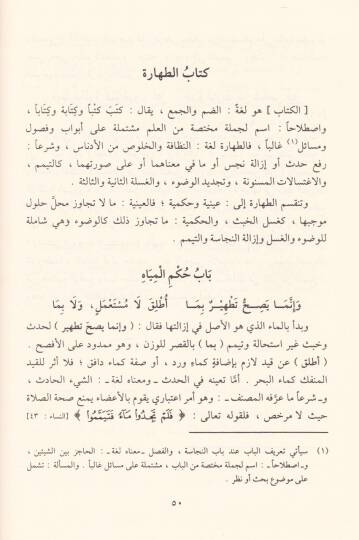 كتابُ الطهارة
[ الكتاب ] هو لغةً : الضم والجمع ، يقال : كتَبَ كتْباً وكِتَابة وكِتَاباً ،
واصطلاحاً : اسم لجملة مختصة من العلم مشتملة على أبواب وفصول
ومسائل(١) غالباً ، فالطهارة لغة : النظافة والخلوص من الأدناس ، وشرعاً :
رفع حدث أو إزالة نجس أو ما في معناهما أو على صورتهما ، كالتيمم ،
والاغتسالات المسنونة ، وتجديد الوضوء ، والغسلة الثانية والثالثة .
وتنقسم الطهارة إلى : عينية وحكمية ؛ فالعينية : ما لا تجاوز محلَّ حلول
موجبها ، كغسل الخبث ، والحكمية : ما تجاوز ذلك كالوضوء وهي شاملة
للوضوء والغسل وإزالة النجاسة والتيمم .
بَابُ حُكْمِ المِيَاهِ
وَإِنَّمَا يَصِحُّ تَطْهِيرٌ بِمَا أُطْلِقَ لَا مُسْتَعْمَلٍ، وَلَا بِمَا
وبدأ بالماء الذي هو الأصل في إزالتها فقال : ( وإنما يصحّ تطهير ) لحدث
وخبث غير استحالة وتيمم ( بما ) بالقصر للوزن ، وهو ممدود على الأفصح .
( أطلق ) عن قيد لازم بإضافةٍ كماءِ ورد ، أو صفة كماء دافق ؛ فلا أثر للقيد
المنفك كماء البحر . أمَّا تعينه في الحدث ـ ومعناه لغة ـ : الشيء الحادث ،
ـ وشرعاً ما عرَّفه المصنف ـ : وهو أمر اعتباري يقوم بالأعضاء يمنع صحة الصلاة
حيث لا مرخص ، فلقوله تعالى : ﴿ فَلَمْ تَجِدُوا مَاءً فَتَيَمَّمُوا ﴾ [النساء : ٤٣]
(١) سيأتي تعريف الباب عند باب النجاسة ، والفصل ـ معناه لغة ـ : الحاجز بين الشيئين ،
ـ واصطلاحاً ـ : اسم لجملة مختصة من الباب ، مشتملة على مسائل غالباً . والمسألة : تشمل
على موضوع بحث أو نظر .
٥٠